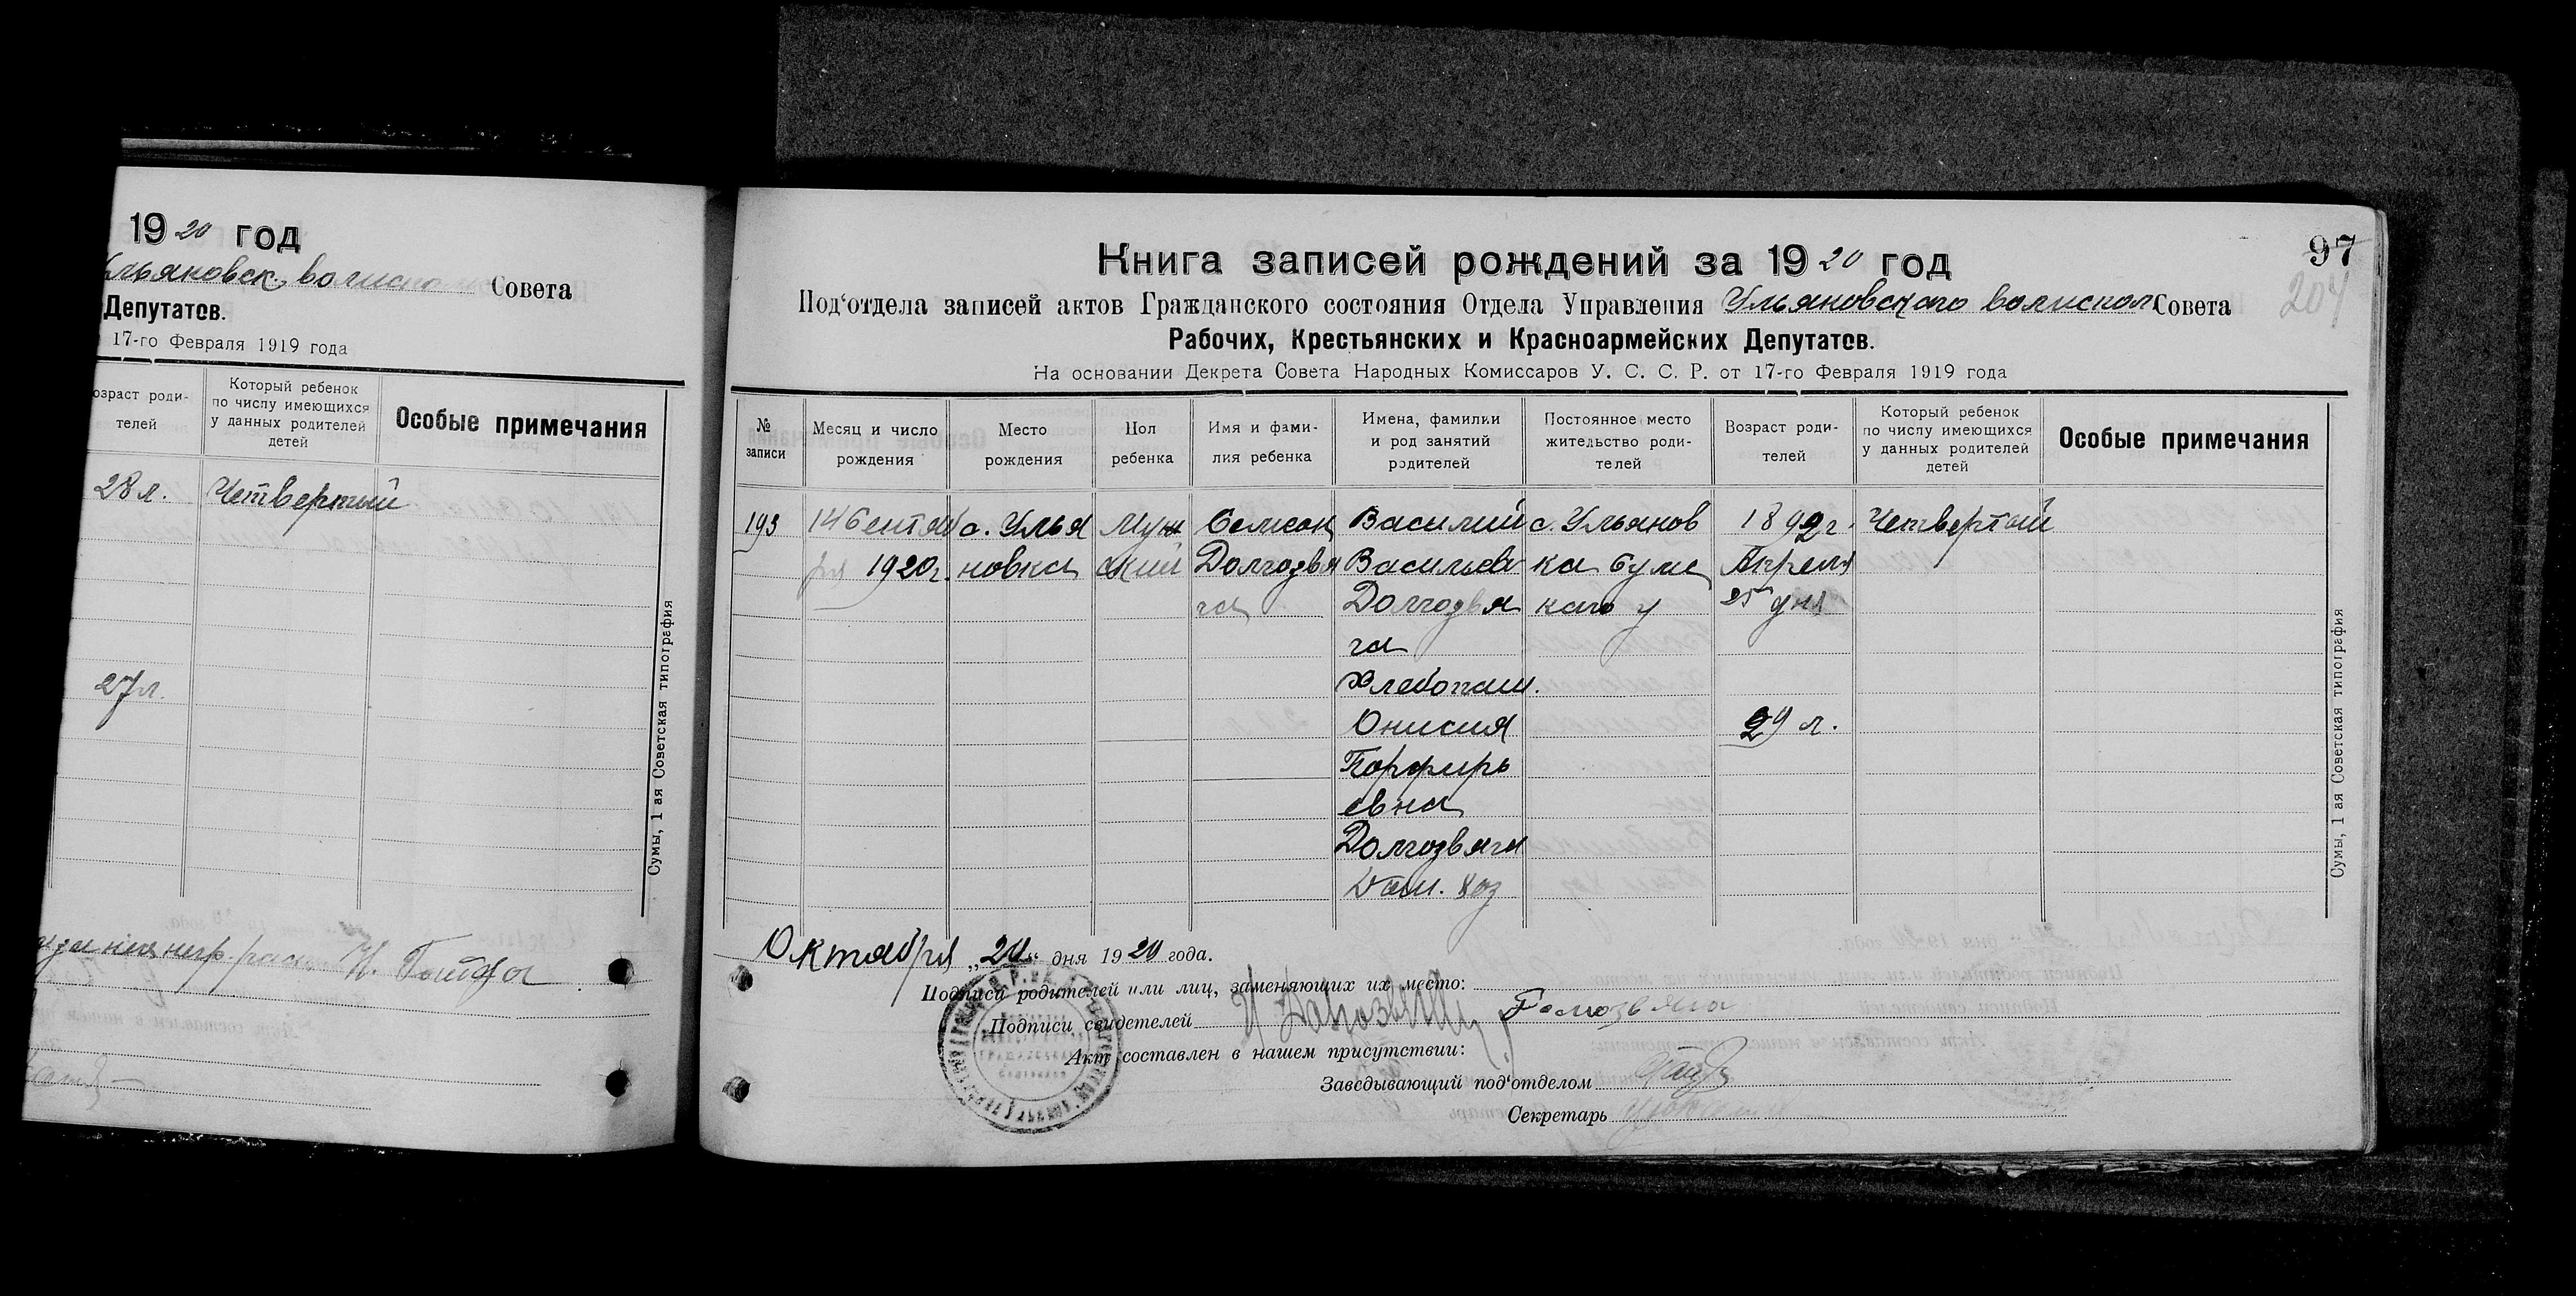 1920 год
льяновск волиспо Совета
Депутатов.
17-го Февраля 1919 года
озраст роди-
телей
Который ребенок
по числу имеющихся
у данных родителей
детей
Особые примечания
28 л. Четвертый
27 л.
Сумы, 1 ая Советская типография
97
204
Книга записей рождений за 1920 год
Под'отдела записей актов Гражданского состояния Отдела Управления Ульяновского волиспол Совета
Рабочих, Крестьянских и Красноармейских Депутатов.
На основании Декрета Совета Народных Комиссаров У. С. С. Р. от 17-го Февраля 1919 года
№
записи
Месяц и число
рождения
Место
рождения
Пол
ребенка
Имя и фами-
лия ребенка
Имена, фамилии
и род занятий
родителей
Постоянное место
жительство роди-
телей
Возраст роди-
телей
Который ребенок
по числу имеющихся
у данных родителей
детей
Особые примечания
193
14 Сентяб
ря 1920 г.
с. Улья
новка
Муж
ский
Семион
Долгозвя
га
Василий
Васильев
Долгозвя
га
Хлебопаш.
Онисия
Порфирь
евна
Долгозвяга
Дом. хоз
с. Ульянов
ка Сумс
кого у
1892 г.
Апреля
25 дня
29 л.
Четвертый
Октября „20“ дня 1920 года.
Подписи родителей или лиц, заменяющих их место:
Подписи свидетелей
Акт составлен в нашем присутствии:
Заведывающий под'отделом
Секретарь
Сумы, 1 ая Советская типография